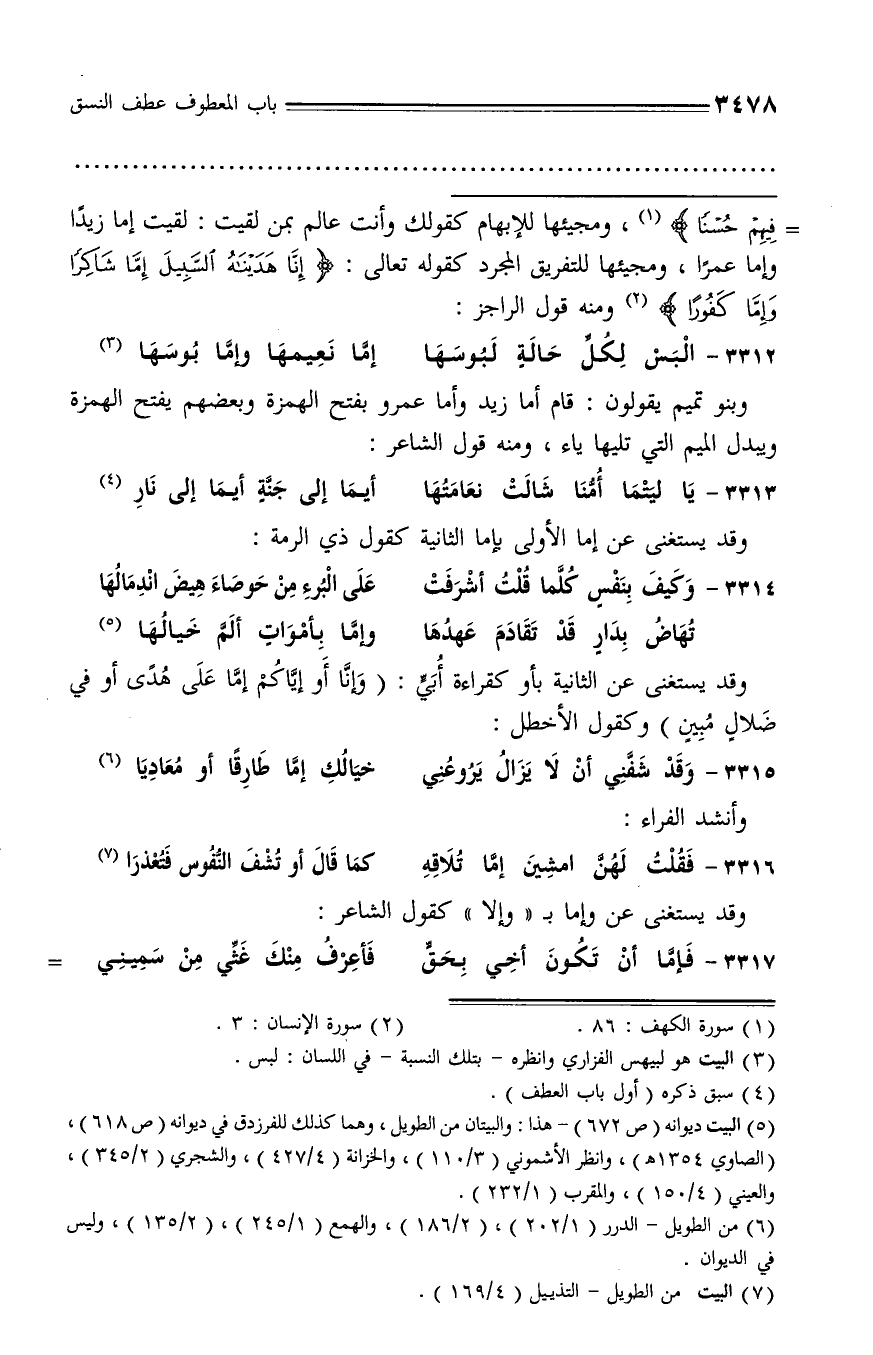 ٣٤٧٨ باب المعطوف عطف النسق
= فِيهِمْ حُسْنًا ﴾ (١) ، ومجيئها للإبهام كقولك وأنت عالم بمن لقيت : لقيت إما زيدًا
وإما عمرًا ، ومجيئها للتفريق المجرد كقوله تعالى : ﴿ إِنَّا هَدَيْنَاهُ ٱلسَّبِيلَ إِمَّا شَاكِرًا
وَإِمَّا كَفُورًا ﴾ (٢) ومنه قول الراجز :
٣٣١٢ - الْبَسْ لِكُلِّ حَالَةٍ لَبُوسَهَا إمَّا نَعِيمهَا وإمَّا بُوسَهَا (٣)
وبنو تميم يقولون : قام أما زيد وأما عمرو بفتح الهمزة وبعضهم يفتح الهمزة
ويبدل الميم التي تليها ياء ، ومنه قول الشاعر :
٣٣١٣ - يَا ليَتْمَا أُمُّنَا شَالَتْ نعَامَتُهَا أيـمَا إلى جَنَّةٍ أيـمَا إلى نَارِ (٤)
وقد يستغنى عن إما الأولى بإما الثانية كقول ذي الرمة :
٣٣١٤ - وَكَيفَ بِنَفْسٍ كُلَّما قُلْتُ أشْرَفَتْ عَلَى الْبُرءِ مِنْ حَوصَاءَ هِيضَ انْدِمَالُهَا
تُهَاضُ بِدَارٍ قَدْ تَقَادَمَ عَهدُهَا وإمَّا بِأمْوَاتٍ ألَمَّ خَيالُهَا (٥)
وقد يستغنى عن الثانية بأو كقراءة أُبَيٍّ : ( وَإنَّا أَو إيَّاكُمْ إمَّا عَلَى هُدًى أو في
ضَلالٍ مُبِينٍ ) وكقول الأخطل :
٣٣١٥ - وَقَدْ شَفَّنِي أنْ لَا يَزَالُ يَرُوعُنِي خيَالُكِ إمَّا طَارِقًا أو مُعَادِيَا (٦)
وأنشد الفراء :
٣٣١٦ - فَقُلْتُ لَهُنَّ امشِينَ إمَّا تُلَاقِهِ كمَا قَالَ أو تُشْفَ النُّفُوس فَتُعْذرَا (٧)
وقد يستغنى عن وإما بـ « وإلا » كقول الشاعر :
٣٣١٧ - فَإمَّا أنْ تَكُونَ أخِي بِحَقٍّ فَأعرِفُ مِنْكَ غَثِّي مِنْ سَمِينِي =
(١) سورة الكهف : ٨٦ . (٢) سورة الإنسان : ٣ .
(٣) البيت هو لبيهس الفزاري وانظره - بتلك النسبة - في اللسان : لبس .
(٤) سبق ذكره ( أول باب العطف ) .
(٥) البيت ديوانه ( ص ٦٧٢ ) - هذا : والبيتان من الطويل ، وهما كذلك للفرزدق في ديوانه ( ص ٦١٨ ) ،
(الصاوي ١٣٥٤هـ) ، وانظر الأشموني ( ١١٠/٣ ) ، والخزانة ( ٤٢٧/٤ ) ، والشجري ( ٣٤٥/٢ ) ،
والعيني ( ١٥٠/٤ ) ، والمقرب ( ٢٣٢/١ ) .
(٦) من الطويل - الدرر ( ٢٠٢/١ ) ، ( ١٨٦/٢ ) ، والهمع ( ٢٤٥/١ ) ، ( ١٣٥/٢ ) ، وليس
في الديوان .
(٧) البيت من الطويل - التذييل ( ١٦٩/٤ ) .